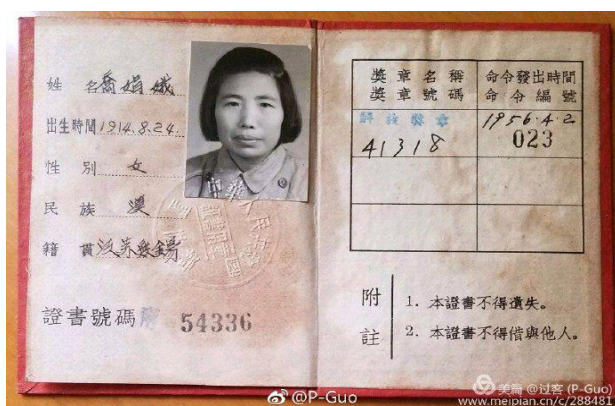 姓名 喬娟娥
出生時間 1914.8.24.
性別 女
民族 漢
籍貫 江蘇無錫
證書號碼 54336
獎章名稱 命令發出時間
獎章號碼 命令編號
解放獎章 1956.4.2
41318 023
附註
1. 本證書不得遺失。
2. 本證書不得借與他人。
@P-Guo
美篇 @过客 (P-Guo)
www.meipian.cn/c/288481